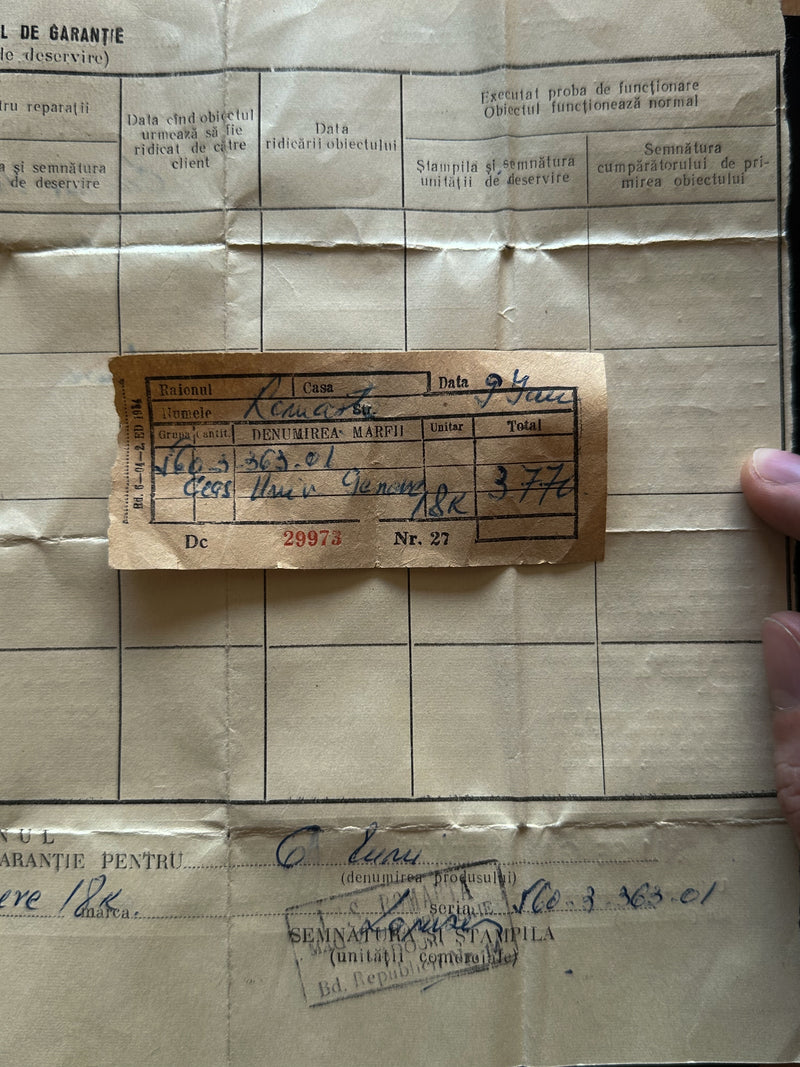 L DE GARANȚIE
le deservire)
tru reparații
a și semnătura
i de deservire
Data cînd obiectul
urmează să fie
ridicat de către
client
Data
ridicării obiectului
Executat proba de funcționare
Obiectul funcționează normal
Ștampila și semnătura
unității de deservire
Semnătura
cumpărătorului de pri-
mirea obiectului
Raionul
Casa
Data 9 Ian
Numele
Grupa
Cantit.
DENUMIREA MARFII
Unitar
Total
560-3-363.01
Ceas Univ Geneve
18K
377
Dc 29973 Nr. 27
NUL
ARANȚIE PENTRU 6 luni
(denumirea produsului)
eve 18K marca. seria 560-3-363-01
SEMNĂTURA ȘI ȘTAMPILA
(unității comerciale)
ROMARTA
Bd. Republicii